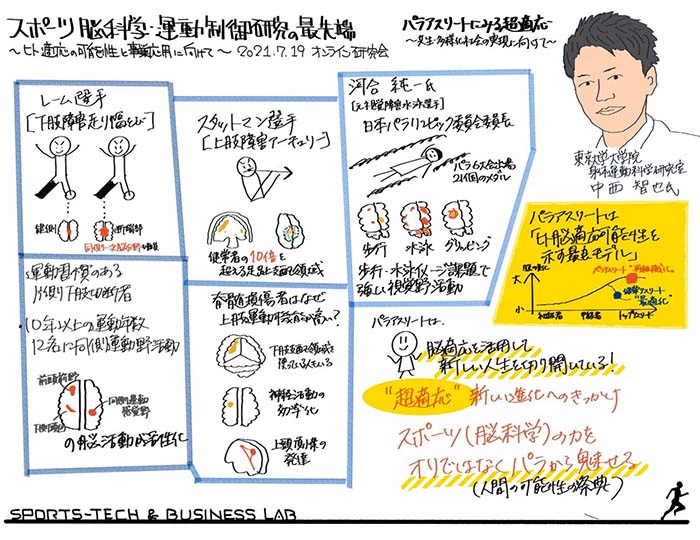 スポーツ脳科学・運動制御研究の最先端
〜ヒト適応の可能性と事業応用に向けて〜 2021.7.19 オンライン研究会
パラアスリートにみる超適応
〜共生・多様化社会の実現に向けて〜
東京大学大学院
身体運動科学研究室
中西 智也氏
レーム選手
[下肢障害走り幅とび]
健側
切断側
スタットマン選手
[上肢障害アーチェリー]
健常者の10倍を
超える足の支配領域
河合 純一氏
[元視覚障害水泳選手]
日本パラリンピック委員会委員長
パラ6大会出場
21個のメダル
歩行
水泳
グリッピング
歩行・水泳イメージ課題で
強い視覚野活動
パラアスリートは
「ヒト脳適応可能性を
示す最良モデル」
大
小
パラアスリート"再組織化"
健常アスリート
"最適化"
初級者
中級者
トップアスリート
運動習慣のある
片側下肢切断者
10年以上の運動年数
12名に同側運動野活動
前頭前野
同側運動
感覚野
の脳活動が活性化
脊髄損傷者はなぜ
上肢運動機能が高い?
下肢支配の領域を
使っている
神経活動の
効率化
上頭頂小葉の
発達
パラアスリートは…
脳適応を活用して
新しい人生を切り開いている!
"超適応" 新しい進化へのきっかけ
スポーツ(脳科学)の力を
オリではなくパラから魅せる
(人間の可能性の祭典)
SPORTS-TECH & BUSINESS LAB